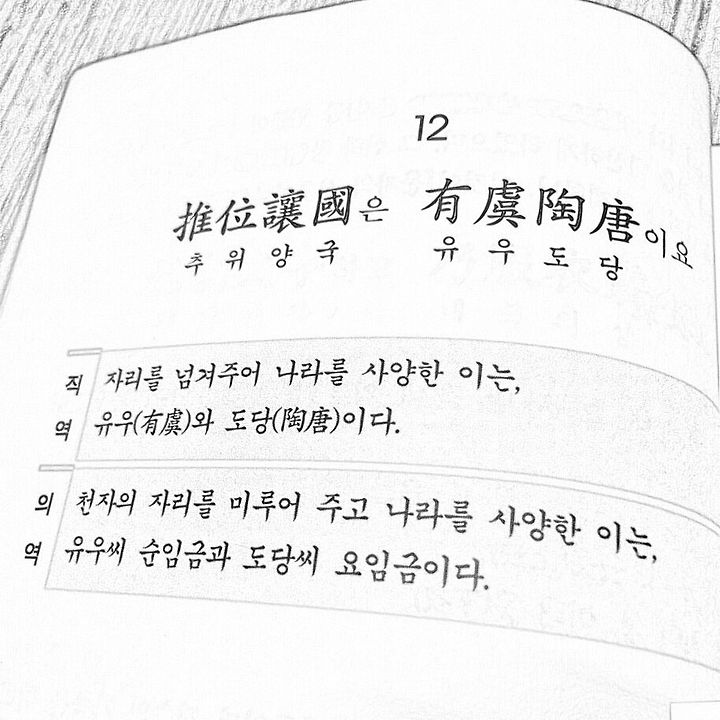 12
推位讓國은 有虞陶唐이요
추위양국 유우도당
직역
자리를 넘겨주어 나라를 사양한 이는,
유우(有虞)와 도당(陶唐)이다.
의역
천자의 자리를 미루어 주고 나라를 사양한 이는,
유우씨 순임금과 도당씨 요임금이다.